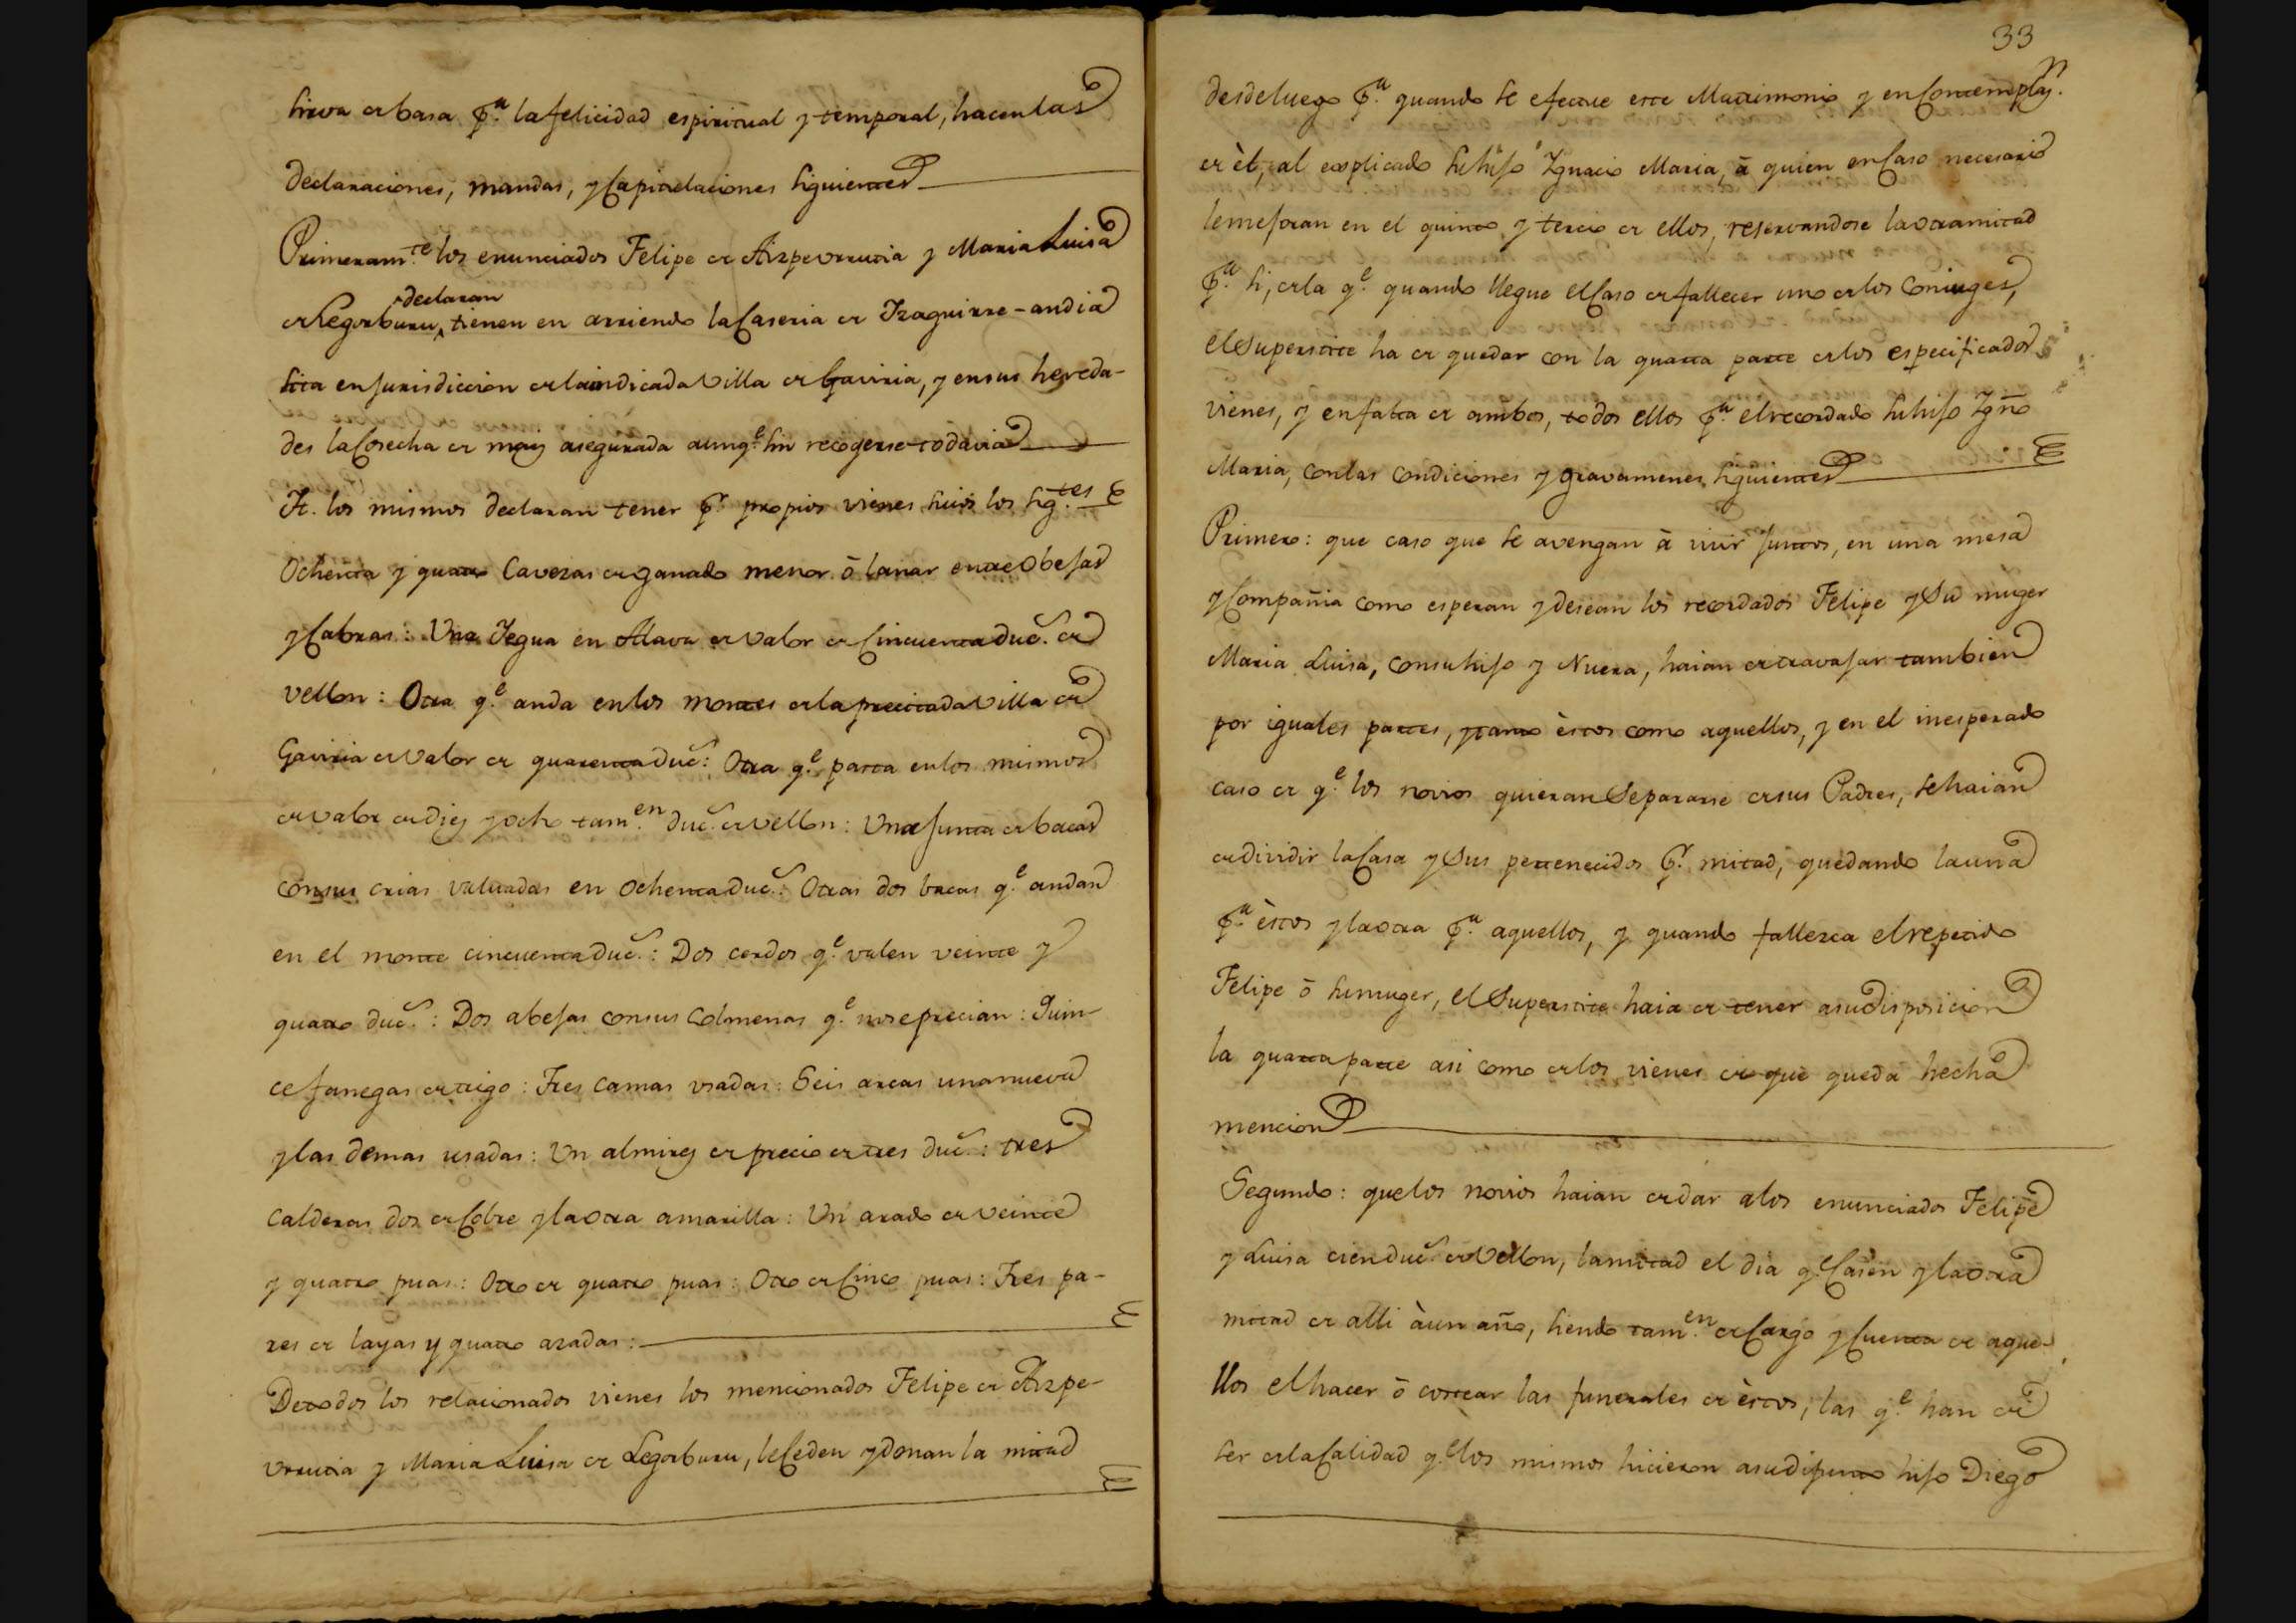 sirva de basa p.ª la felicidad espiritual y temporal, hacen las
declaraciones, mandas, y Capitulaciones siguientes
Primeram.te los enunciados Felipe de Aizpeurrutia y Maria Luisa
de Legorburu, declaran tienen en arriendo la Caseria de Izaguirre-andia
sita en Jurisdiccion de la indicada Villa de Gaviria, y en sus hereda-
des la Cosecha de maiz asegurada aunq.e sin recogerse todavia
It. los mismos declaran tener p.r propios vienes suios los sig.tes
Ochenta y quatro Cavezas de ganado menor ó lanar entre Obejas
y Cabras: Una Yegua en Alava de valor de Cincuenta duc.s de
vellon: Otra q.e anda en los montes de la precitada Villa de
Gaviria de Valor de quarenta duc.s: Otra q.e parta en los mismos
de valor de diez y ocho tam.en duc.s de vellon: Una Junta de bacas
con sus crias valuadas en ochenta duc.s: Otras dos bacas q.e andan
en el monte cincuenta duc.s: Dos cerdos q.e valen veinte y
quatro duc.s: Dos abejas con sus Colmenas q.e no se precian: Quin-
ce fanegas de trigo: Tres camas usadas: Seis arcas una nueva
y las demas usadas: Un almirez de precio de tres duc.s: tres
Calderas dos de Cobre y la otra amarilla: Un arado de veinte
y quatro puas: Otro de quatro puas: Otro de Cinco puas: Tres pa-
res de layas y quatro azadas:
De todos los relacionados vienes los mencionados Felipe de Aizpe-
urrutia y Maria Luisa de Legorburu, le Ceden y donan la mitad
33
desde luego p.ª quando se efectue este Matrimonio y en Contemplaz.n
de èl, al explicado su hijo Ygnacio Maria, à quien en Caso necesario
le mejoran en el quinto y tercio de ellos, reservandose la otra mitad
p.ª si, de la q.e quando llegue el Caso de fallecer uno de los Coniuges,
el Superstite ha de quedar con la quarta parte de los especificados
vienes, y en falta de ambos, todos ellos p.ª el recordado su hijo Ygn.o
Maria, con las condiciones y gravamenes siguientes
Primero: que caso que se avengan à vivir juntos, en una mesa
y Compañia como esperan y desean los recordados Felipe y Su muger
Maria Luisa, con su hijo y Nuera, haian de travajar tambien
por iguales partes, y tanto èstos como aquellos, y en el inesperado
caso de q.e los novios quieran Separarse de sus Padres, se haian
de dividir la Casa y Sus pertenecidos p.r mitad, quedando la una
p.ª èstos y la otra p.ª aquellos, y quando fallezca el repetido
Felipe ó su muger, el Superstite haia de tener a su disposicion
la quarta parte asi como de los vienes de que queda hecha
mencion
Segundo: que los novios haian de dar a los enunciados Felipe
y Luisa cien duc.s de Vellon, la mitad el dia q.e Casen y la otra
mitad de alli à un año, siendo tam.en de Cargo y Cuenta de aque-
llos el hacer ó costear las funerales de èstos, las q.e han de
ser de la Calidad q.e los mismos hicieron a su difunto hijo Diego